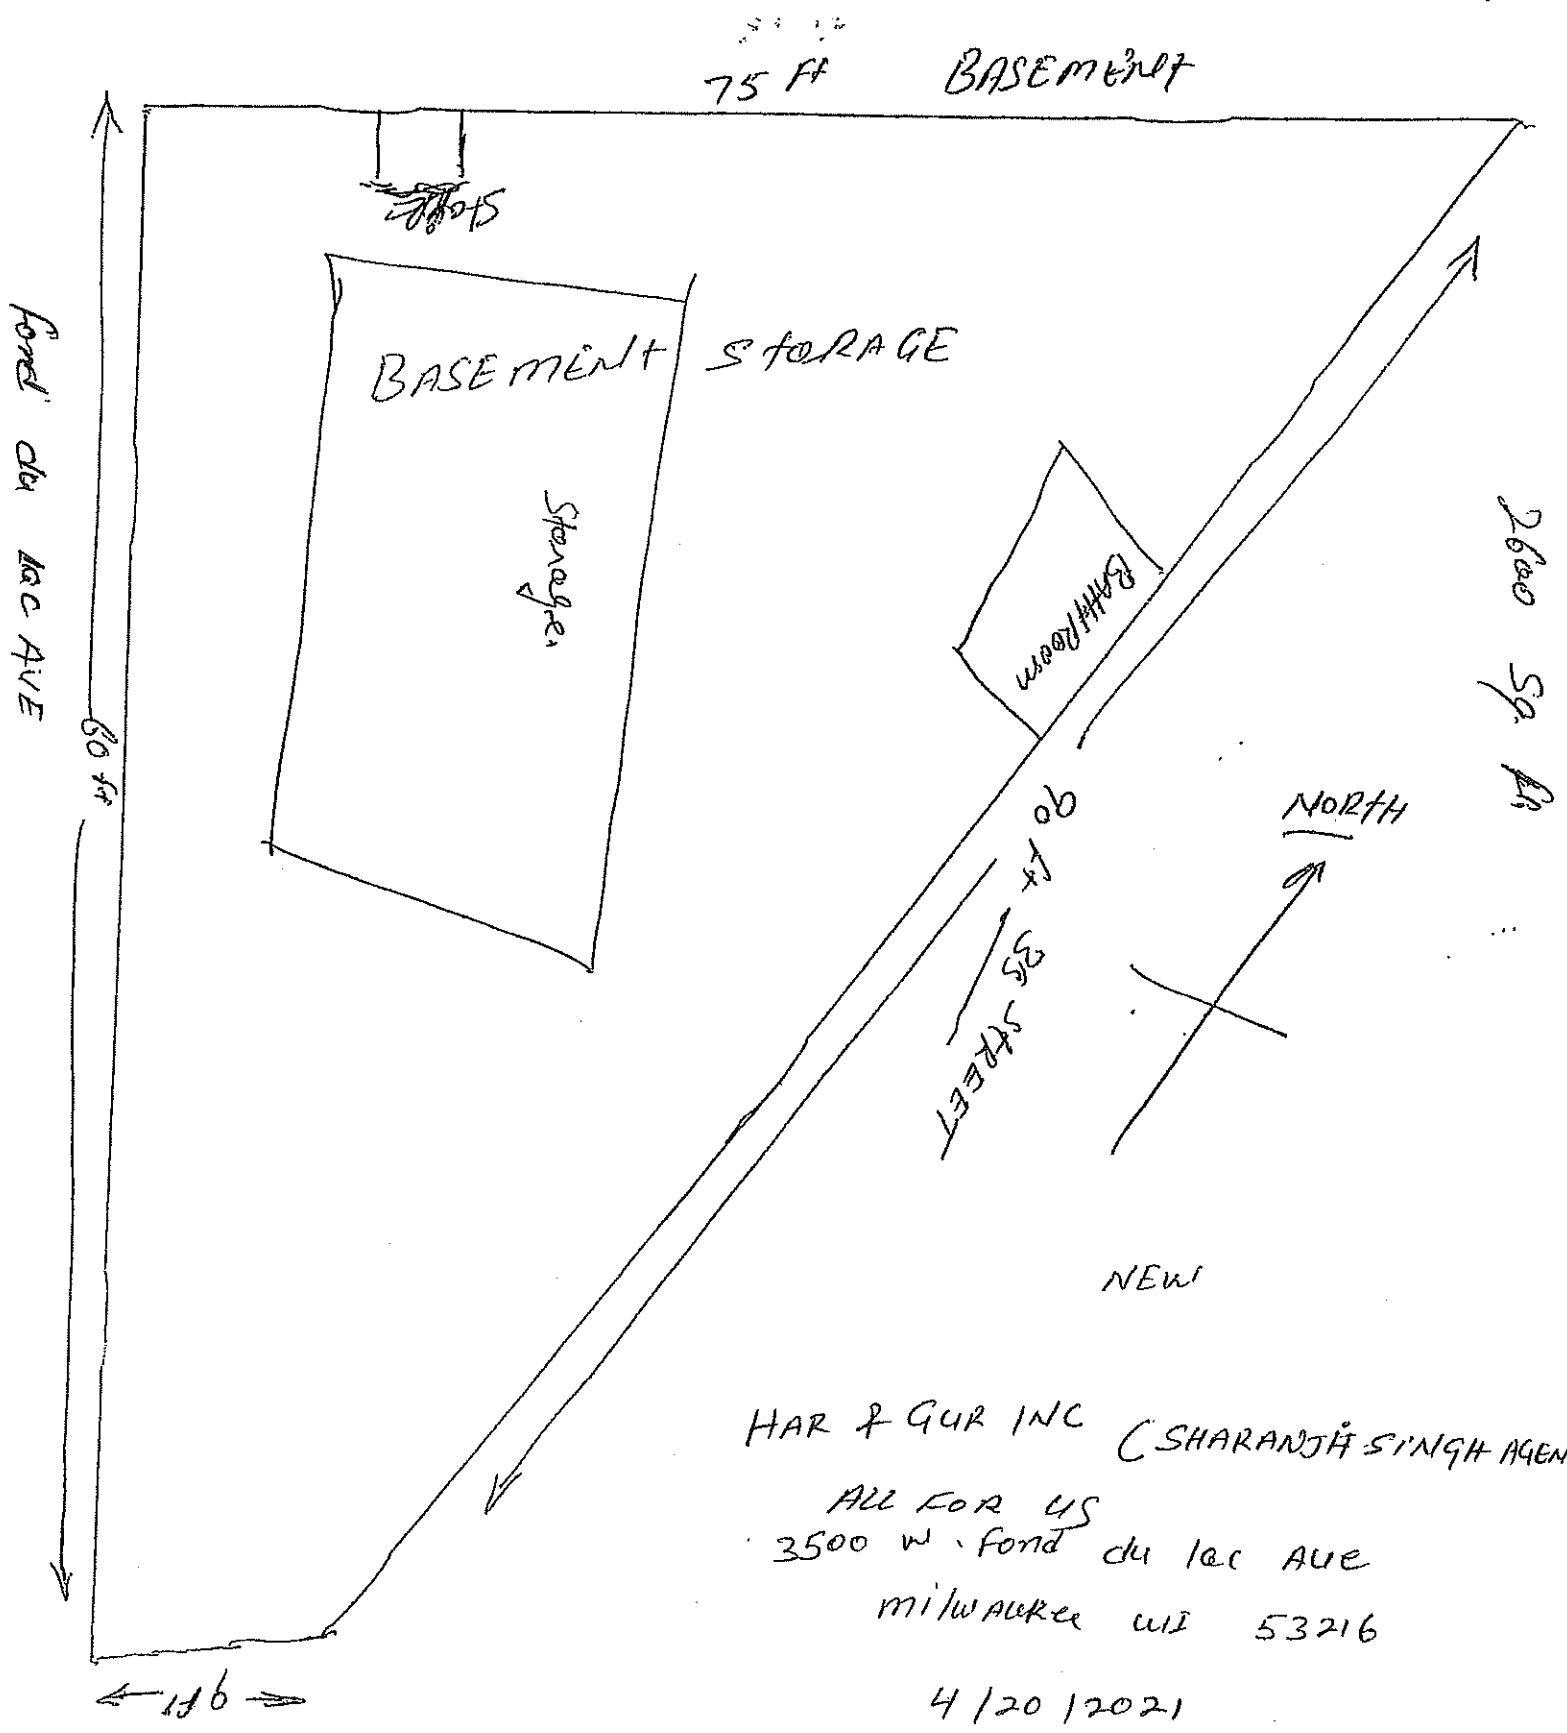 75 Ft BASEMENT
BASEMENT STORAGE
Storage
BATHROOM
fond du lac AVE
60 ft
2600 Sq. ft
90 ft 35 STREET
NORTH
NEW
HAR & GUR INC (SHARANJIT SINGH AGEN
ALL FOR US
3500 W. Fond du lac Ave
milwaukee WI 53216
9 ft
4/20/2021